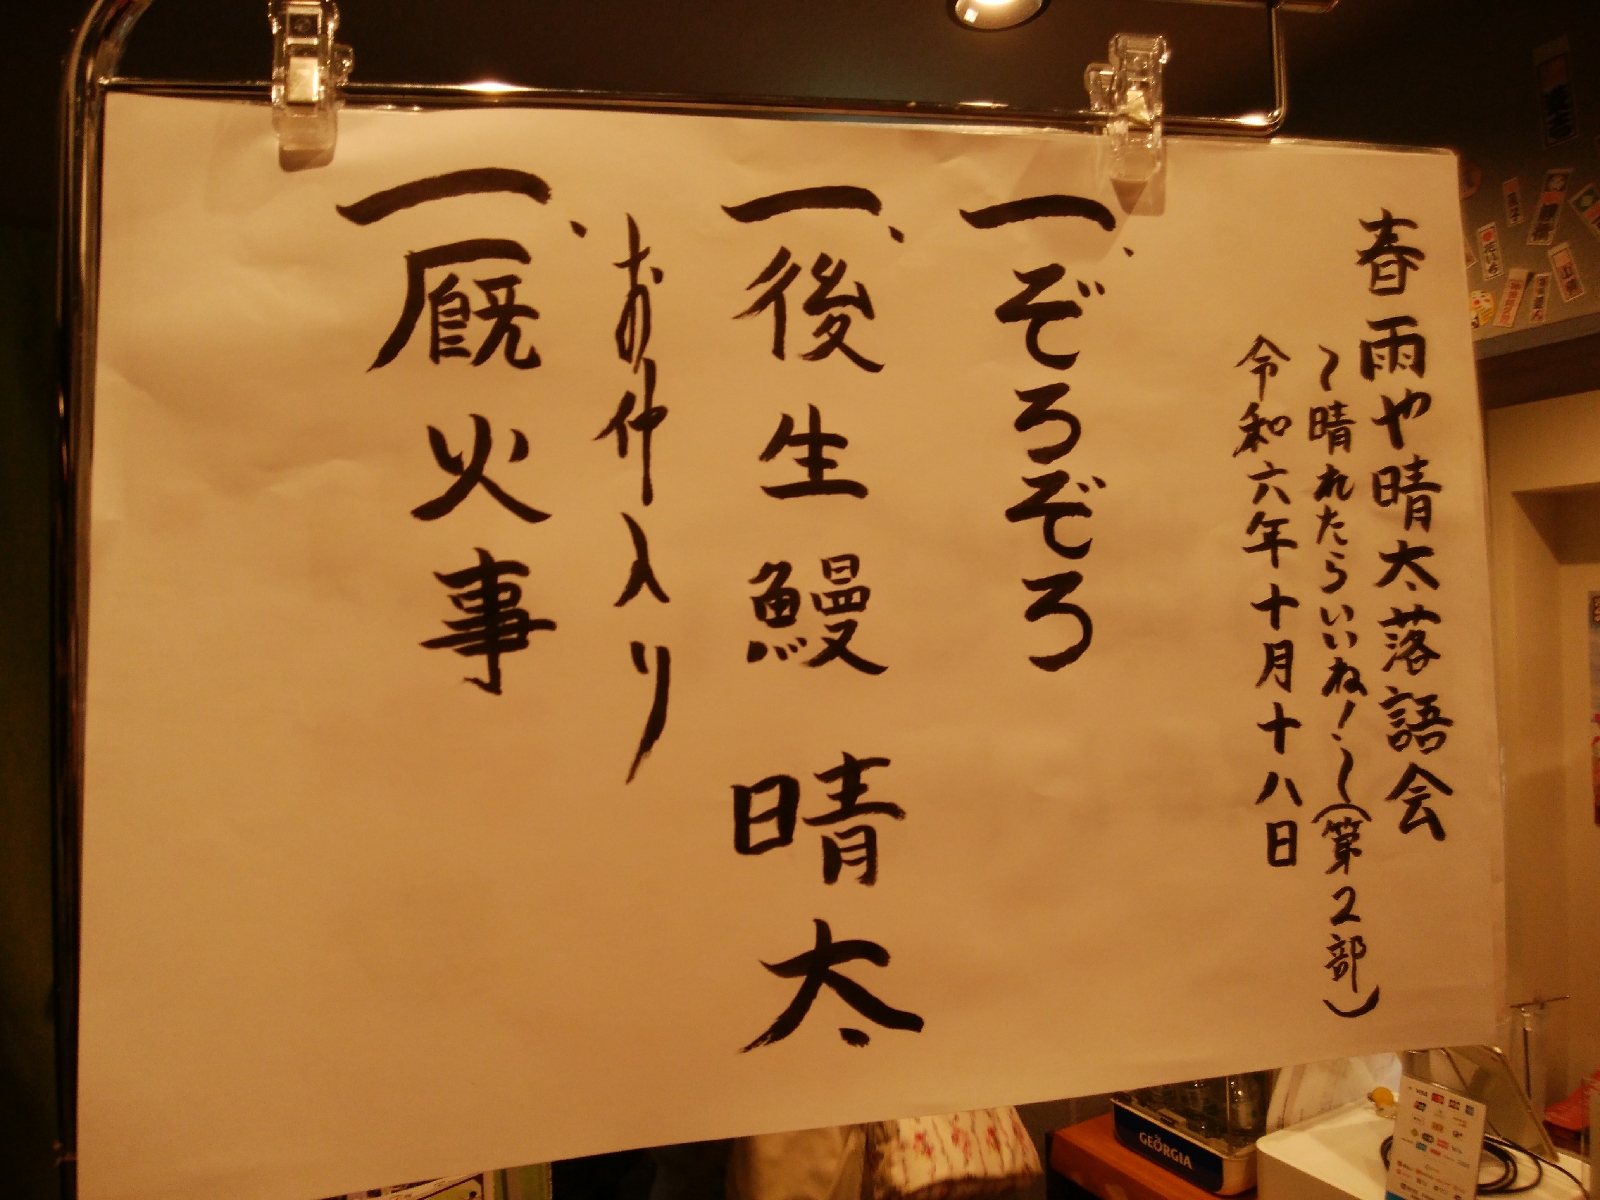 春雨や晴太落語会
〜晴れたらいいね!〜(第2部)
令和六年十月十八日
一、ぞろぞろ
一、後生鰻 晴太
お仲入り
一、厩火事
GEORGIA